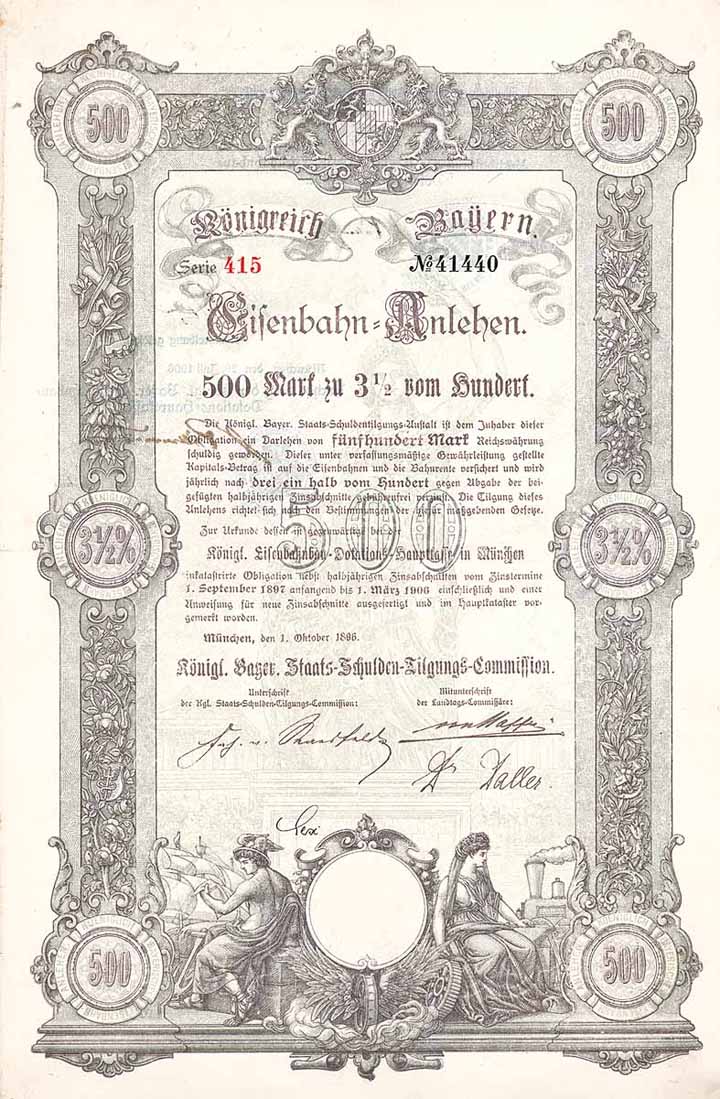 500
500
Königreich Bayern.
Serie 415 № 41440
Eisenbahn=Anlehen.
500 Mark zu 3 1/2 vom Hundert.
Die Königl. Bayer. Staats-Schuldentilgungs-Anstalt ist dem Inhaber dieser
Obligation ein Darlehen von fünfhundert Mark Reichswährung
schuldig geworden. Dieser unter verfassungsmäßige Gewährleistung gestellte
Kapitals-Betrag ist auf die Eisenbahnen und die Bahnrente versichert und wird
jährlich nach drei ein halb vom Hundert gegen Abgabe der bei-
gefügten halbjährigen Zinsabschnitte gebührenfrei verzinst. Die Tilgung dieses
Anlehens richtet sich nach den Bestimmungen der hiefür maßgebenden Gesetze.
500
Zur Urkunde dessen ist gegenwärtige bei der
3½%
3½%
Königl. Eisenbahnbau-Dotations-Hauptkasse in München
inkatastrirte Obligation nebst halbjährigen Zinsabschnitten vom Zinstermine
1. September 1897 anfangend bis 1. März 1906 einschließlich und einer
Anweisung für neue Zinsabschnitte ausgefertigt und im Hauptkataster vor-
gemerkt worden.
München, den 1. Oktober 1896.
Königl. Bayer. Staats-Schulden-Tilgungs-Commission.
Unterschrift
der Kgl. Staats-Schulden-Tilgungs-Commission:
Mitunterschrift
der Landtags-Commissäre:
Dr Daller.
500
500